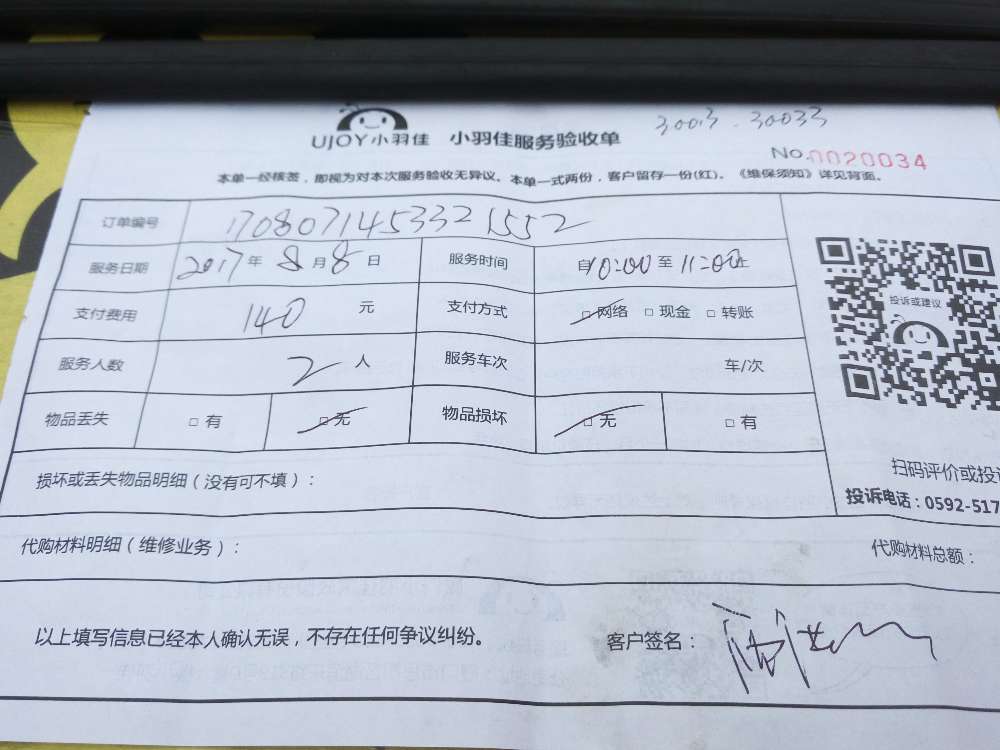 30013 - 30033
UJOY小羽佳 小羽佳服务验收单
No.0020034
本单一经核签，即视为对本次服务验收无异议。本单一式两份，客户留存一份(红)。《维保须知》详见背面。
订单编号 1708071453321552
服务日期 2017年8月8日 服务时间 自10:00至11:00止
支付费用 140 元 支付方式 □网络 □现金 □转账
投诉或建议
服务人数 2 人 服务车次 车/次
物品丢失 □有 □无 物品损坏 □无 □有
损坏或丢失物品明细（没有可不填）：
扫码评价或投
投诉电话：0592-517
代购材料明细（维修业务）： 代购材料总额：
以上填写信息已经本人确认无误，不存在任何争议纠纷。 客户签名：